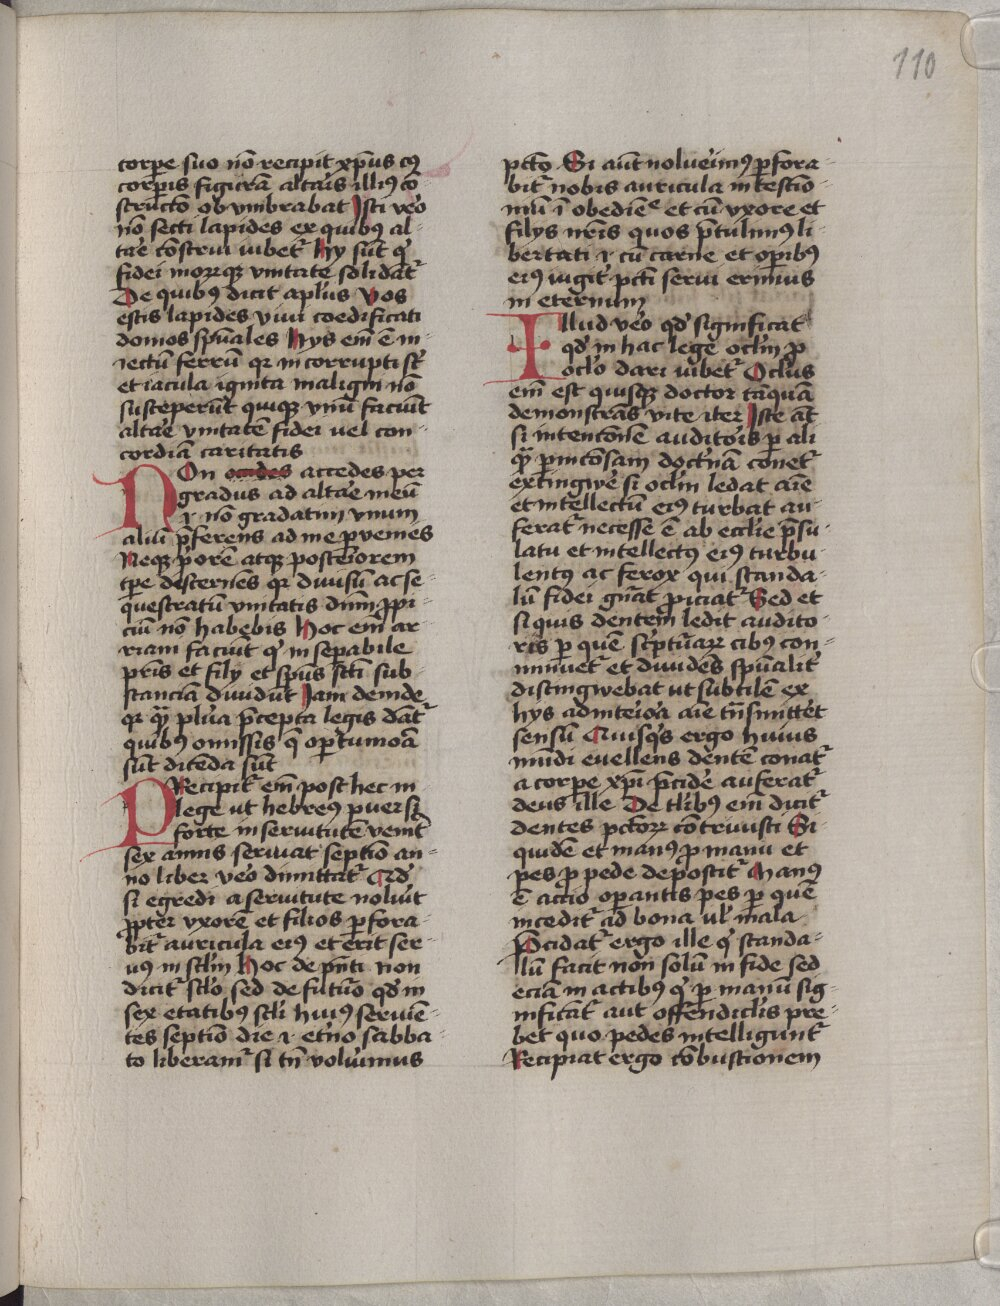 110
corpe suo nō recipit xp̄us cꝰ
corpis figurā altaīs illiꝰ cō
structō ob vmbrabat Isti v̄eo
nō secti lapides ex quibꝰ al
tāe cōstrui iubet᷑ hy sūt qͥ
fidei morꝝqꝫ vnitate solidāt᷑
De quibꝰ dicit ap̄lus Vos
estis lapides viui coedificati
domos sp̄uales hys em̄ ē in
iectū ferrū qꝛ incorrupti st̄
et iacula ignita maligni nō
susceperūt quiqꝫ vnū faciūt
altāe vnitatē fidei vel con
cordiā caritatis
NOn accedes per
gradus ad altāe meū
⁊ nō gradatim vnum
aliū p̄ferens ad me pvenies
Neqꝫ p̄orē atqꝫ posterīorem
tp̄e descernēs qꝛ diuisū ac se
questratū vnitatis dn̄m ꝓpi
ciū nō habebis hoc em̄ ar
riani faciūt qͥ insepabile
pr̄is et fily et sp̄us sc̄ti sub
stanciā diuidūt Iam deinde
qꝛ qͣꝫ plūa p̄cepta legis dāt᷑
quibꝰ omissis q̄ opṟ̄tumōa
sūt dicēda sūt
PRecipit᷑ em̄ post hec in
lege ut hebreꝰ puer si
forte in seruitutē venīt
sex annis seruiat septiō an
no liber v̄eo dimittat᷑ Qd̄
si egredi a seruitute nolūit
ꝓpter vxorē et filios ꝑfora
bit᷑ auricula eiꝰ et erit ser
uꝰ in sclm̄ hoc de pn̄ti non
dicit᷑ sclō sed de futūo qd̄ in
sex etatibꝰ scl̄i huiꝰ seruiē
tes septiō die ⁊ et̄no sabba
to liberam᷑ si tn̄ voluimus
pctō Si aūt nolūeimꝰ ꝑfora
bit᷑ nobis auricula in testiō
niū ī obedieͤ et cū vxore et
filys nr̄is quos p̄tulimꝰ li
bertati ⁊ cū carne et opībꝰ
eiꝰ iugit᷑ pcti serui erimus
in eternum
Illud v̄eo qd̄ significat
qd̄ in hac lege oclm̄ ꝓ
oclō dari iubet᷑ Oclūs
em̄ est quisqꝫ doctor tāquā
demonstrās vite iter Iste āt
si intencōnē auditōis ꝑ ali
qͣꝫ ꝑnicōsam doct᷑nā conet᷑
extingw̄e si oclm̄ ledat aīe
et intellectū eiꝰ turbat au
ferat᷑ necesse ē ab ecclīe p̄su
latu et intellectꝰ eiꝰ turbu
lentꝰ ac ferox qui scanda
lū fidei gn̄at ꝓiciat᷑ Sed et
si quis dentem ledit audito
ris ꝑ quē sc̄pturaꝝ cibꝰ con
minuet᷑ et diuidēs sp̄ualit᷑
distingwebat ut subtilē ex
hys ad inteīoa aīe tn̄smittēt
sensū Quisqͥs ergo huius
mūdi euellens dentē conat᷑
a corpe xp̄i p̄cidē auferat᷑
deus ille De tl̄ibꝰ em̄ dicit᷑
dentes pctoꝝ cōtriuisti Si
quidē et manꝰ ꝓ manu et
pes ꝓ pede depostit᷑ Manꝰ
ē actio opantis pes ꝑ quē
incedit᷑ ad bona ul̄ mala
P̄cidat᷑ ergo ille qͥ scanda
lū facit non solū in fide sed
eciā in actibꝰ qͥ ꝑ manū sig
nificāt᷑ aut offendiclīs pre
bet quo pedes intelligunt᷑
Recipiat ergo cōbustionem